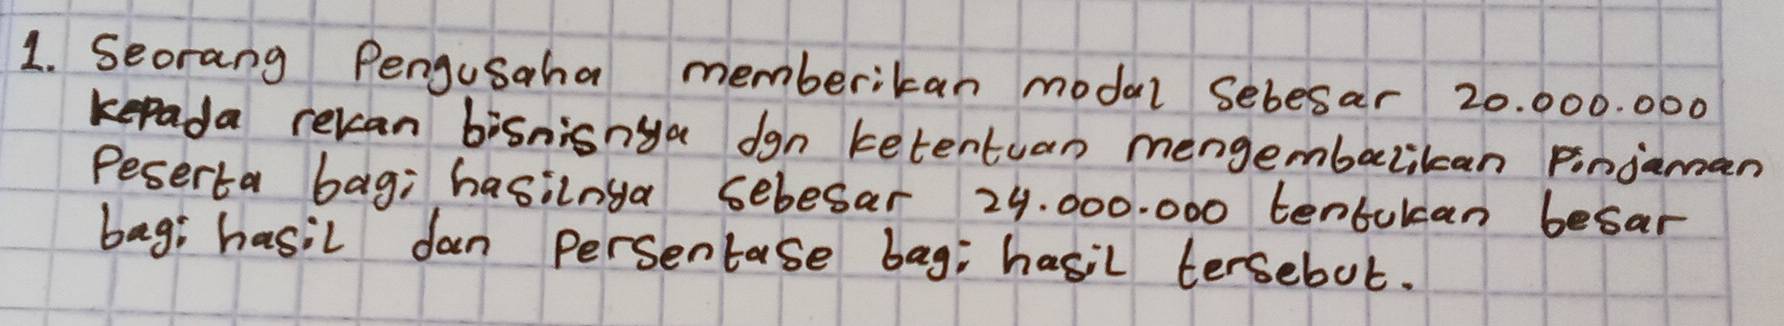 1. Seorang Pengusaha memberikan modal sebesar 20.000.000
kepada rekan bisnisnya dgn ketentuan mengembalikan Pinjaman
Peserta bagi hasilnya sebesar 24.000.000 tentukan besar
bagi hasil dan persentase bagi hasil tersebut.